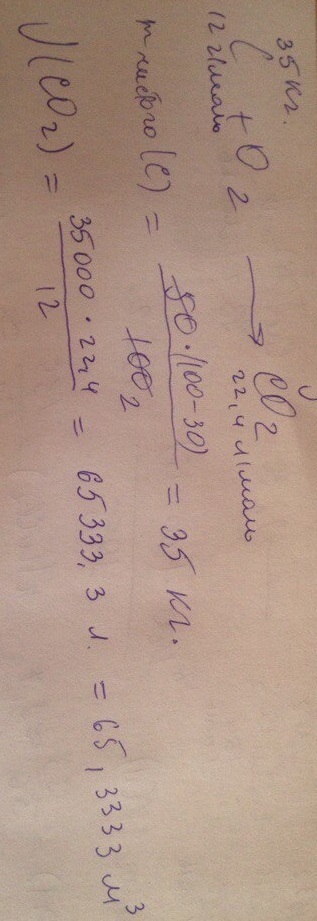 35 кг. V
C + O2 → CO2
12 г/моль 22,4 л/моль
m чистого (C) = 50·(100-30) / 100 2 = 35 кг.
V(CO2) = 35000·22,4 / 12 = 65333,3 л. = 65,3333 м³